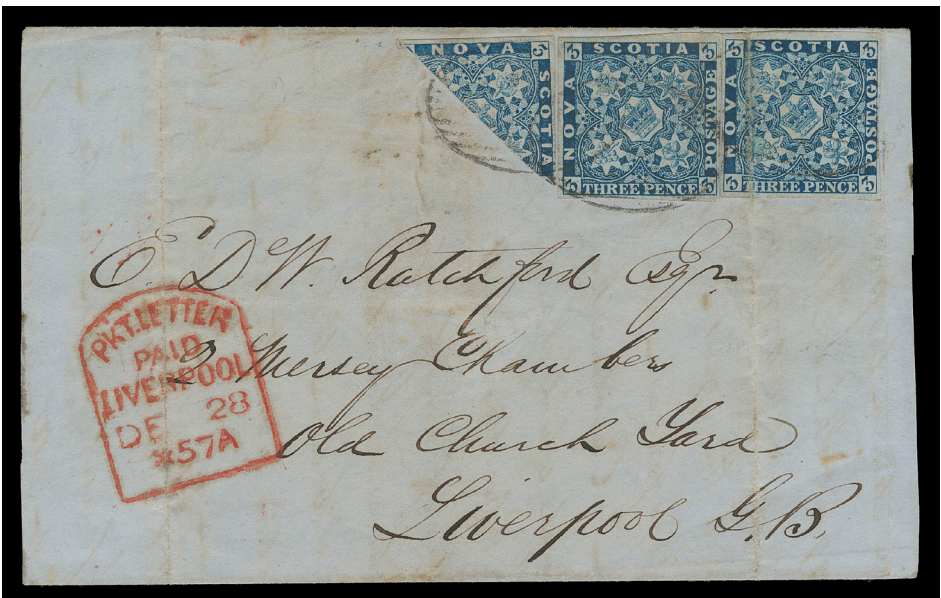 NOVA SCOTIA 3
NOVA SCOTIA POSTAGE THREE PENCE 3 3 3
NOVA SCOTIA POSTAGE THREE PENCE 3 3 3
E. D W. Ratchford Esqr
2 Mersey Chambers
Old Church Yard
Liverpool G.B.
PKT.LETTER
PAID
LIVERPOOL
DE 28
57A